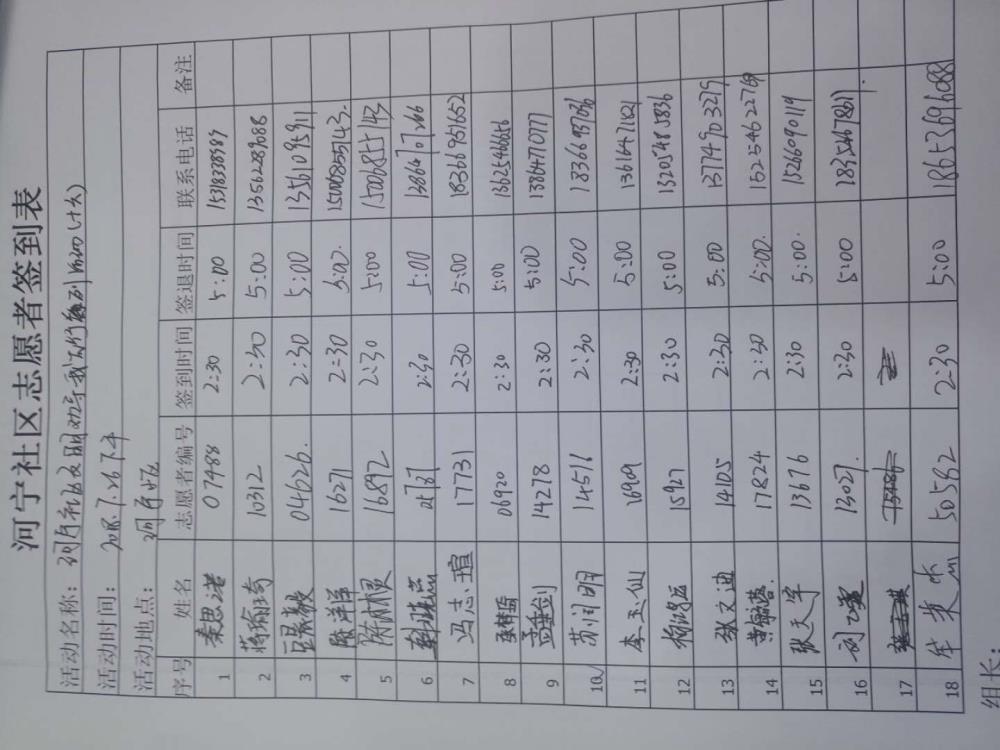 河宁社区志愿者签到表
活动名称：河宁社区文明劝导我先行
活动时间：2018.7.26下午
活动地点：河宁社区
序号 姓名 志愿者编号 签到时间 签退时间 联系电话 备注
1 秦思诺 07488 2:30 5:00 15318338989
2 蒋瀚琦 10312 2:30 5:00 13502289088
3 04626. 2:30 5:00 13561095911
4 陈洋洋 16271 2:30 5:00 15008555143.
5 16892 2:30 5:00 15006855143
6 2:30 5:00 13864707266
7 马志瑄 17731 2:30 5:00 18366951652
8 06920 2:30 5:00 13625466656
9 孟垂剑 14278 2:30 5:00 13864710777
10 苏小明 14516 2:30 5:00
11 李玉仙 16909 2:30 5:00 13616471821
12 15927 2:30 5:00 13205485836
13 张文迪 14105 2:30 5:00 13774903279
14 17824 2:30 5:00. 15254622769
15 张天宇 13676 2:30 5:00. 15266090119
16 13027. 2:30 5:00 18354678617
17
18 50562 2:30 5:00 18653696088
组长：